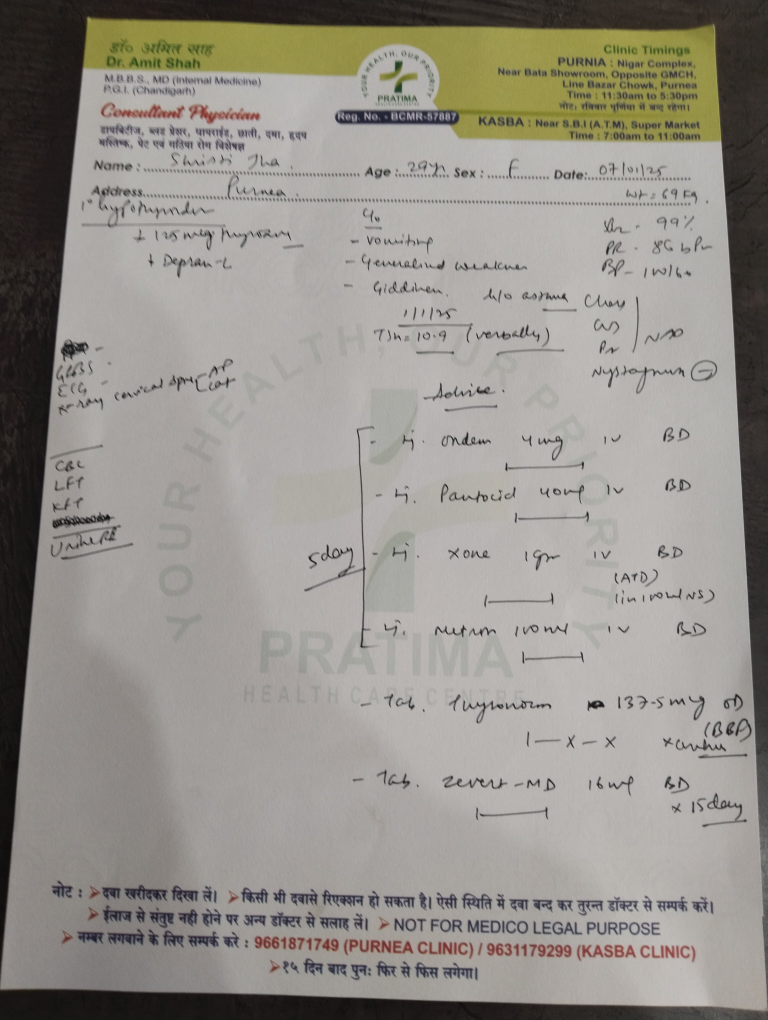 डॉ० अमित साह
Dr. Amit Shah
M.B.B.S., MD (Internal Medicine)
P.G.I. (Chandigarh)
Consultant Physician
डायबिटीज, ब्लड प्रेशर, थायराईड, छाती, दमा, हृदय
मस्तिष्क, पेट एवं गठिया रोग विशेषज्ञ
YOUR HEALTH, OUR PRIORITY
PRATIMA
Reg. No. - BCMR-57887
Clinic Timings
PURNIA : Nigar Complex,
Near Bata Showroom, Opposite GMCH,
Line Bazar Chowk, Purnea
Time : 11:30am to 5:30pm
नोट: रविवार पूर्णिया में बन्द रहेगा।
KASBA : Near S.B.I (A.T.M), Super Market
Time : 7:00am to 11:00am
Name : Shristi Jha Age : 29yr Sex : F Date: 07/01/25
Address Purnea Wt = 69 Kg
1° hypothyroidism
125 mcg thyronorm
+ Depran-L
C/o
- Vomiting
- Generalised weakness
- Giddiness
h/o asthma
99%
PR - 86 bpm
BP -
Chest
CVS
P/A
NAD
Nystagmus -
1/1/25
TSH = 10.9 (verbally)
ECG -
X-ray cervical spine AP
Lat
Advice
CBC
LFT
KFT
Urine RE
5 day
- Inj. Ondem 4mg IV BD
- Inj. Pantocid 40mg IV BD
- Inj. Xone 1gm IV BD
(ATD)
(in 100ml NS)
- Inj. Metron 100ml IV BD
- Tab. Thyronorm 137.5mcg OD
(BBF)
1 - x - x
- Tab. Zevert-MD 16mg BD
x 15 day
YOUR HEALTH, OUR PRIORITY
PRATIMA
HEALTH CARE CENTRE
नोट : ➤ दवा खरीदकर दिखा लें। ➤ किसी भी दवासे रिएक्शन हो सकता है। ऐसी स्थिति में दवा बन्द कर तुरन्त डॉक्टर से सम्पर्क करें।
➤ ईलाज से संतुष्ट नही होने पर अन्य डॉक्टर से सलाह लें। ➤ NOT FOR MEDICO LEGAL PURPOSE
➤ नम्बर लगवाने के लिए सम्पर्क करे : 9661871749 (PURNEA CLINIC) / 9631179299 (KASBA CLINIC)
➤ १५ दिन बाद पुनः फिर से फिस लगेगा।